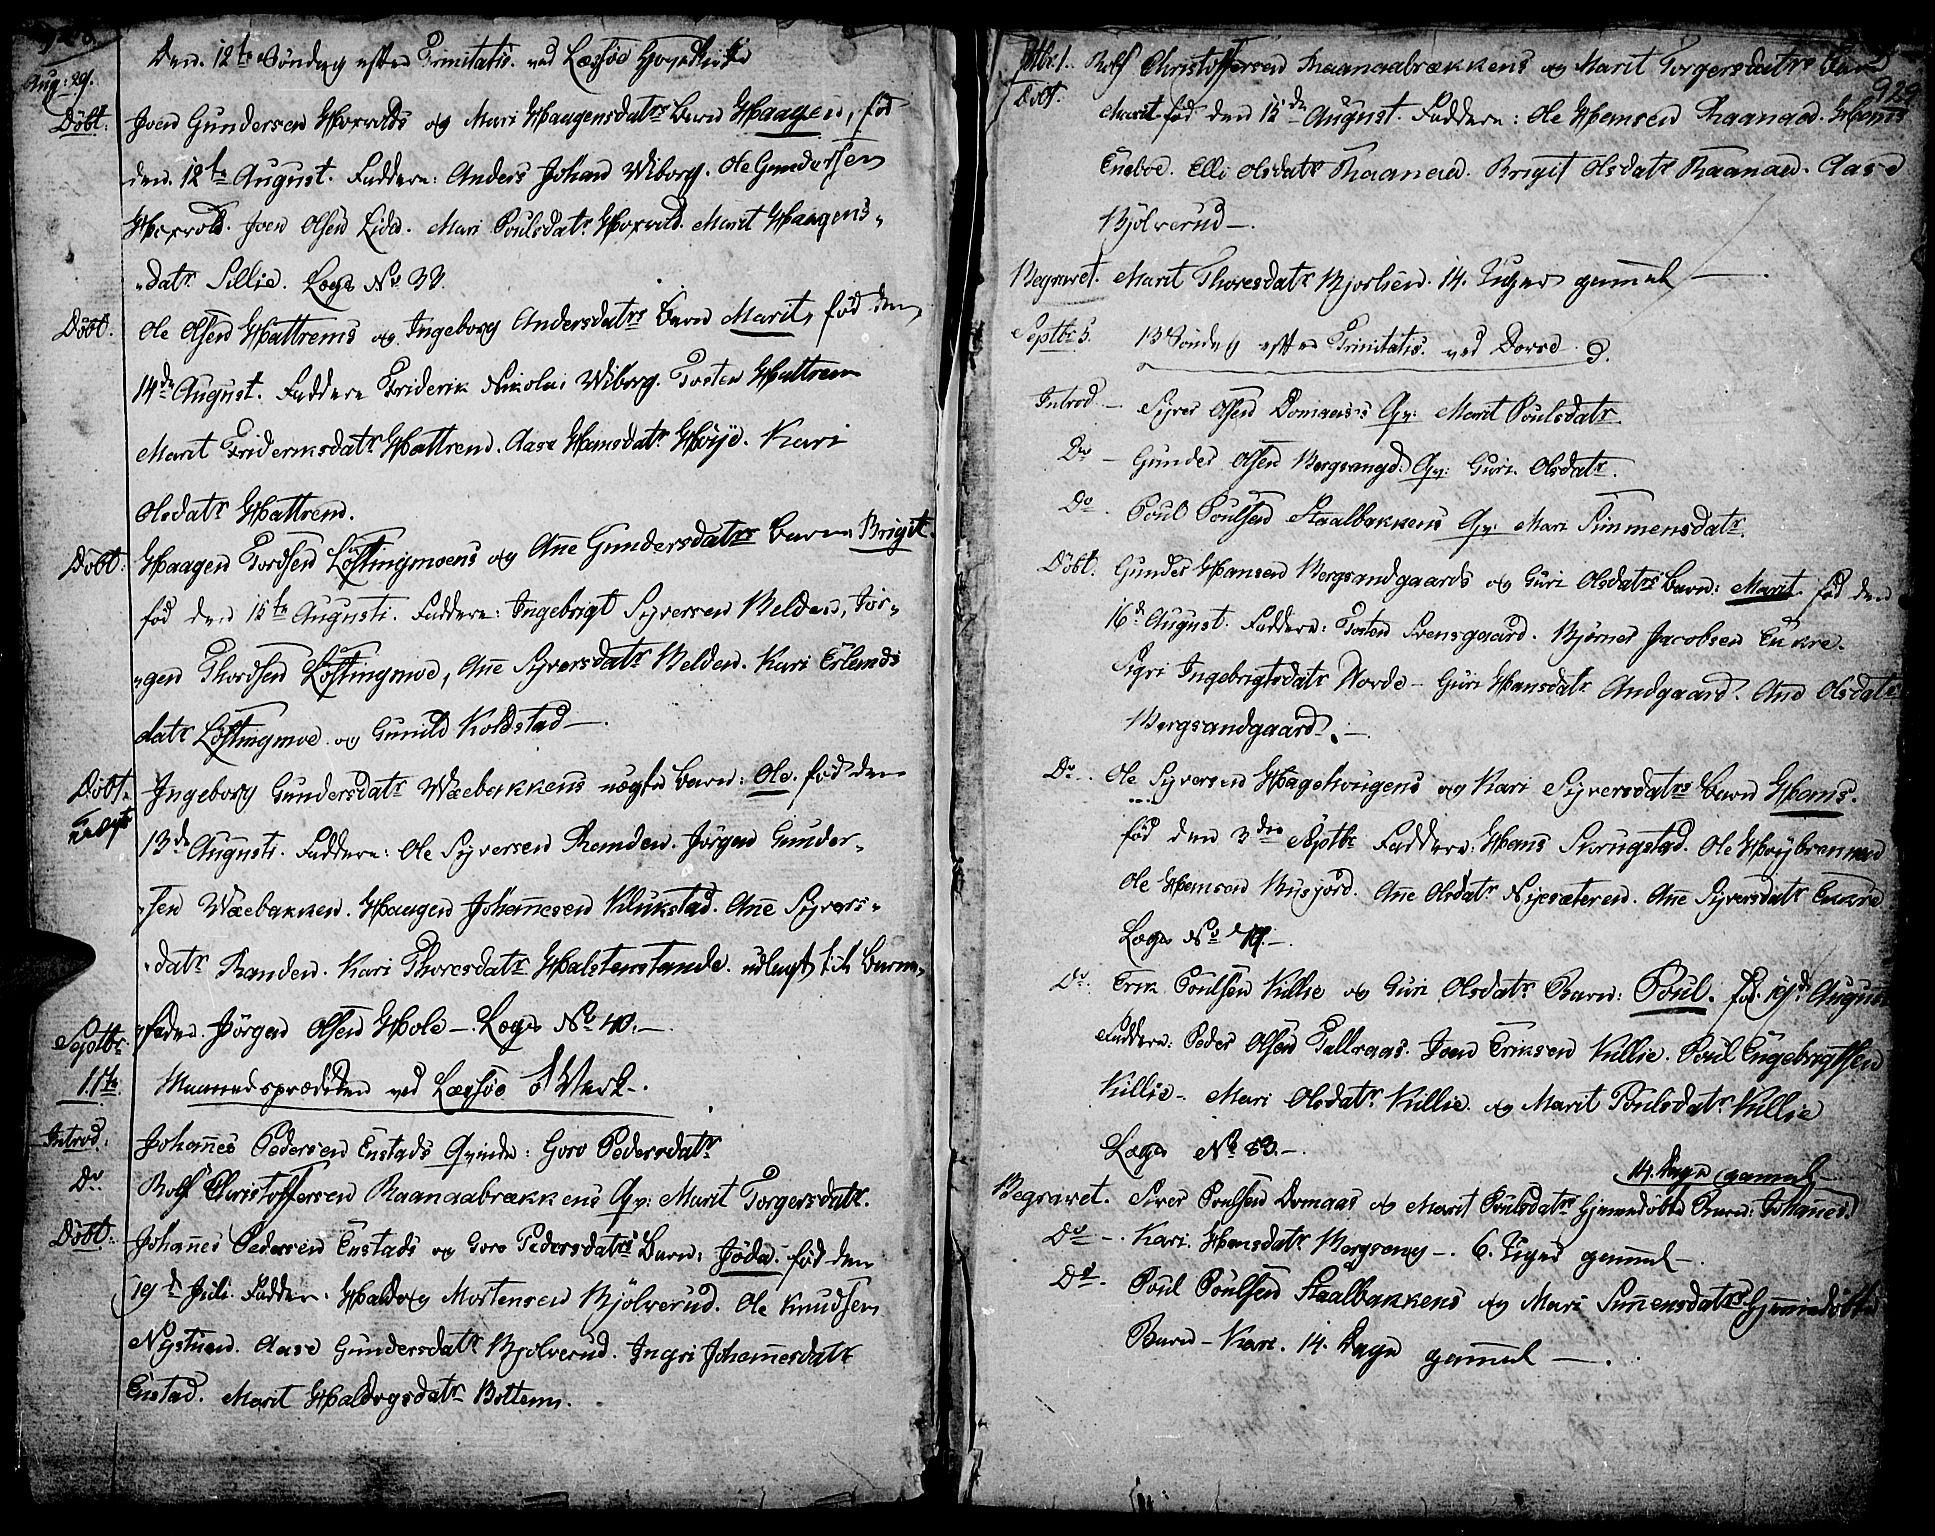 928
Aug: 29. Den 12te Söndag efter Trinitatis ved Læssöe Hovedkirke
Döbt: Joen Gundersen Horrolds og Mari Haagensdatrs Barn Haagen, föd
den 12te August. Faddere: Anders Johan Wiborg. Ole Gundersen
Horrold. Joen Olsen Lide. Mari Poulsdatr Horrold. Marit Haagens-
datr Sillie. Lægs No 33.
Döbt. Ole Olsen Hattrems og Ingeborg Andersdatrs Barn Marit, föd den
14de August. Faddere Friderik Nikolai Wiborg. Tosten Hattrem
Marit Frideriksdatr Hattrem. Aase Hansdatr Höye. Kari
Olsdatr Hattrem.
Döbt: Haagen Tordsen Löftingmoens og Ane Gundersdatrs Barn: Brigit.
föd den 15te Augusti. Faddere: Ingebrigt Syversen Belden, Jör-
gen Thordsen Löftingmoe, Ane Syversdatr Belden. Kari Erlends
datr Löftingmoe og Gunild Kolstad —.
Döbt. Ingeborg Gundersdatr Wæbakkens uægte Barn: Ole. föd den
uægte 13de Augusti. Faddere: Ole Syversen Randen. Jörgen Gunder-
sen Wæbakken. Haagen Johannesen Klukstad. Ane Syvers-
datr Randen. Kari Thoresdatr Halstenstande. udlagt til Barne-
fader Jörgen Olsen Hole —. Lægs No 40. —.
Septbr 1ste Maanedsprædiken ved Læssöe Werk —.
Introd: Johannes Pedersen Enstads Qvinde: Goro Pedersdatr
Do Rolf Christoffersen Raanaabrækkens Qv: Marit Torgersdatr.
Döbt: Johannes Pedersen Enstads og Goro Pedersdatrs Barn: Joda. föd den
19de Juli. Faddere: Haldog Mortensen Björverud. Ole Knudsen
Nystuen. Aase Gundersdatr Bjolverud. Ingri Johannesdatr
Enstad. Marit Haldogsdatr Bottem.
929
Sptbr. 1. Rolf Christoffersen Raanaabrækkens og Marit Torgersdatrs Barn
Döbt. Marit föd den 15de August. Faddere: Ole Hansen Raanaae. Hans
Eneboe. Elli Olsdatr Raanaae. Brigit Olsdatr Raanaae. Aase
Bjölverud —.
Begravet. Marit Thoresdatr Bjorlien. 14. Uger gammel —.
Septbr 5. 13 Söndag efter Trinitatis. ved Dovre
Introd — Syver Olsen Domaases Qv: Marit Poulsdatr.
Do — Gunder Olsen Bergsangd: Qv: Guri Olsdatr.
Do. Poul Poulsen Staalbakkens Qv: Mari Simmensdatr.
Döbt. Gunder Hansen Bergsandgaards og Guri Olsdatrs Barn: Marit. föd den
16de August. Faddere: Tosten Svensgaard. Björner Jacobsen Enkre.
Sigri Ingebrigtsdatr Norde — Guri Hansdatr Andgaard. Ane Olsdatr
Bergsandgaard. —.
Do. Ole Syversen Hagehougens og Kari Syversdatrs Barn Hans.
föd den 3die Septbr. Faddere: Hans Skrugstad. Ole Höybrennen
Ole Hansen Kusjord. Ane Olsdatr Nyesæteren. Ane Syversdatr Enkre
Lægs No 19. —.
Do. Erik Poulsen Killie og Guri Olsdatr Barn: Poul. föd. 19de August
Faddere: Peder Olsen Tallraas. Joen Eriksen Killie. Poul Engebrigtsen
Killie. Mari Olsdatr Killie. og Marit Poulsdatr Killie
Lægs No 53. —.
14. Dage gammel —
Begravet. Siver Poulsen Domaas og Marit Poulsdatrs hjemmedöbte Barn: Johannes.
Do — Kari Hansdatr Borgseng —. 6. Uger gammel —.
Do — Poul Poulsen Staalbakkens og Mari Simensdatrs hjemmedöbte
Barn — Kari. 14. Dage gammel —.